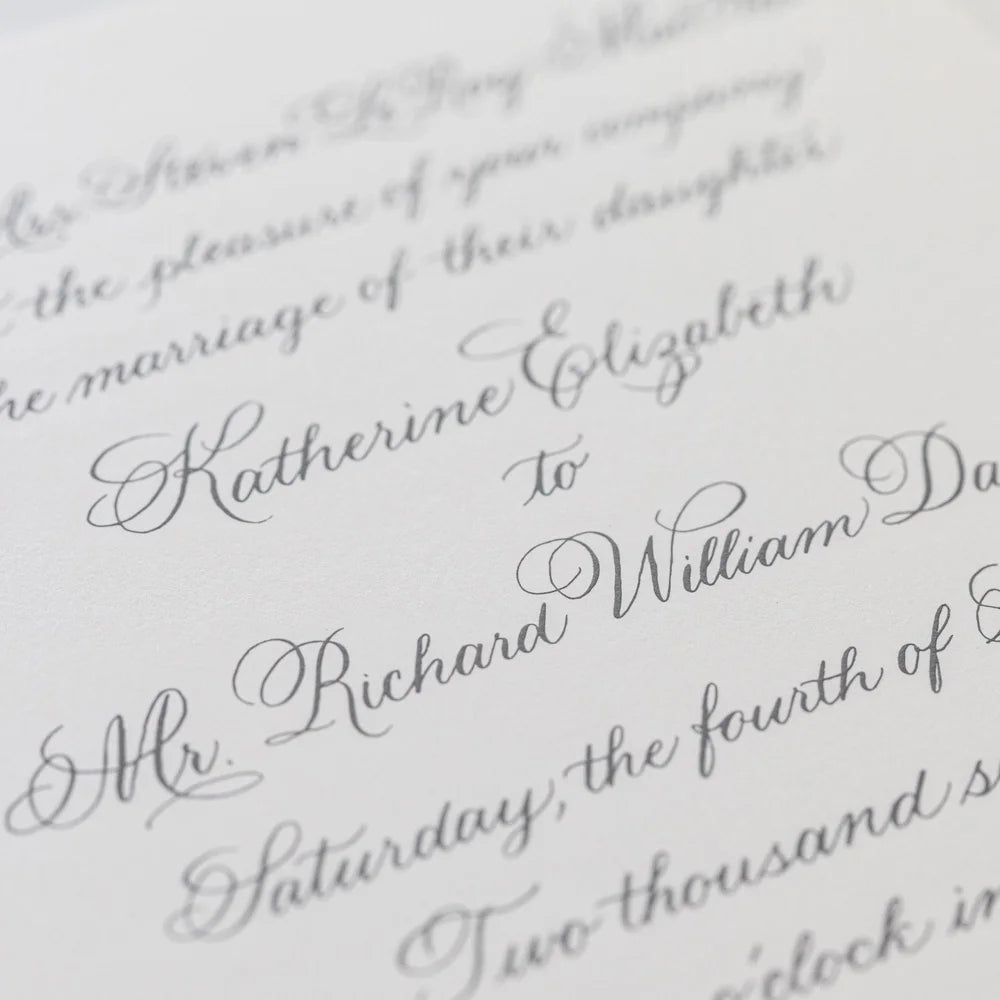 Mrs. Steven Le Roy
the pleasure of your company
the marriage of their daughter
Katherine Elizabeth
to
Mr. Richard William Da
Saturday, the fourth of
Two thousand s
o'clock in